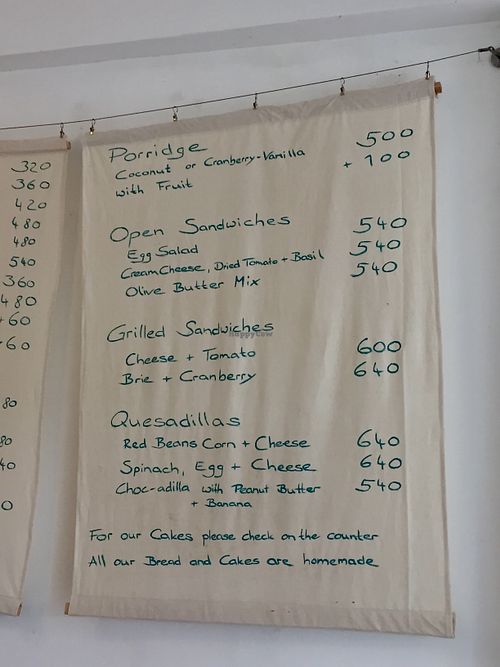 320
360
420
480
480
540
360
480
+60
+60
80
80
40
0
Porridge
Coconut or Cranberry-Vanilla 500
with Fruit + 100
Open Sandwiches
Egg Salad 540
CreamCheese, Dried Tomato + Basil 540
Olive Butter Mix 540
Grilled Sandwiches
Cheese + Tomato 600
Brie + Cranberry 640
Quesadillas
Red Beans Corn + Cheese 640
Spinach, Egg + Cheese 640
Choc-adilla with Peanut Butter 540
+ Banana
For our Cakes please check on the counter
All our Bread and Cakes are homemade
HappyCow